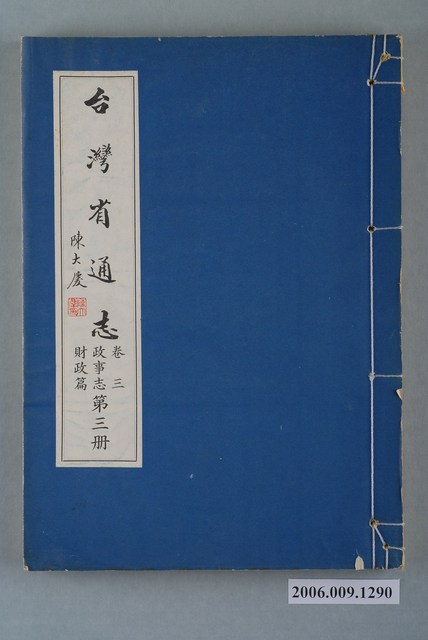 台灣省通志
卷三
政事志
財政篇
第三册
陳大慶
2006.009.1290